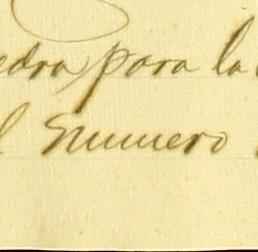 edra para la
l Numero